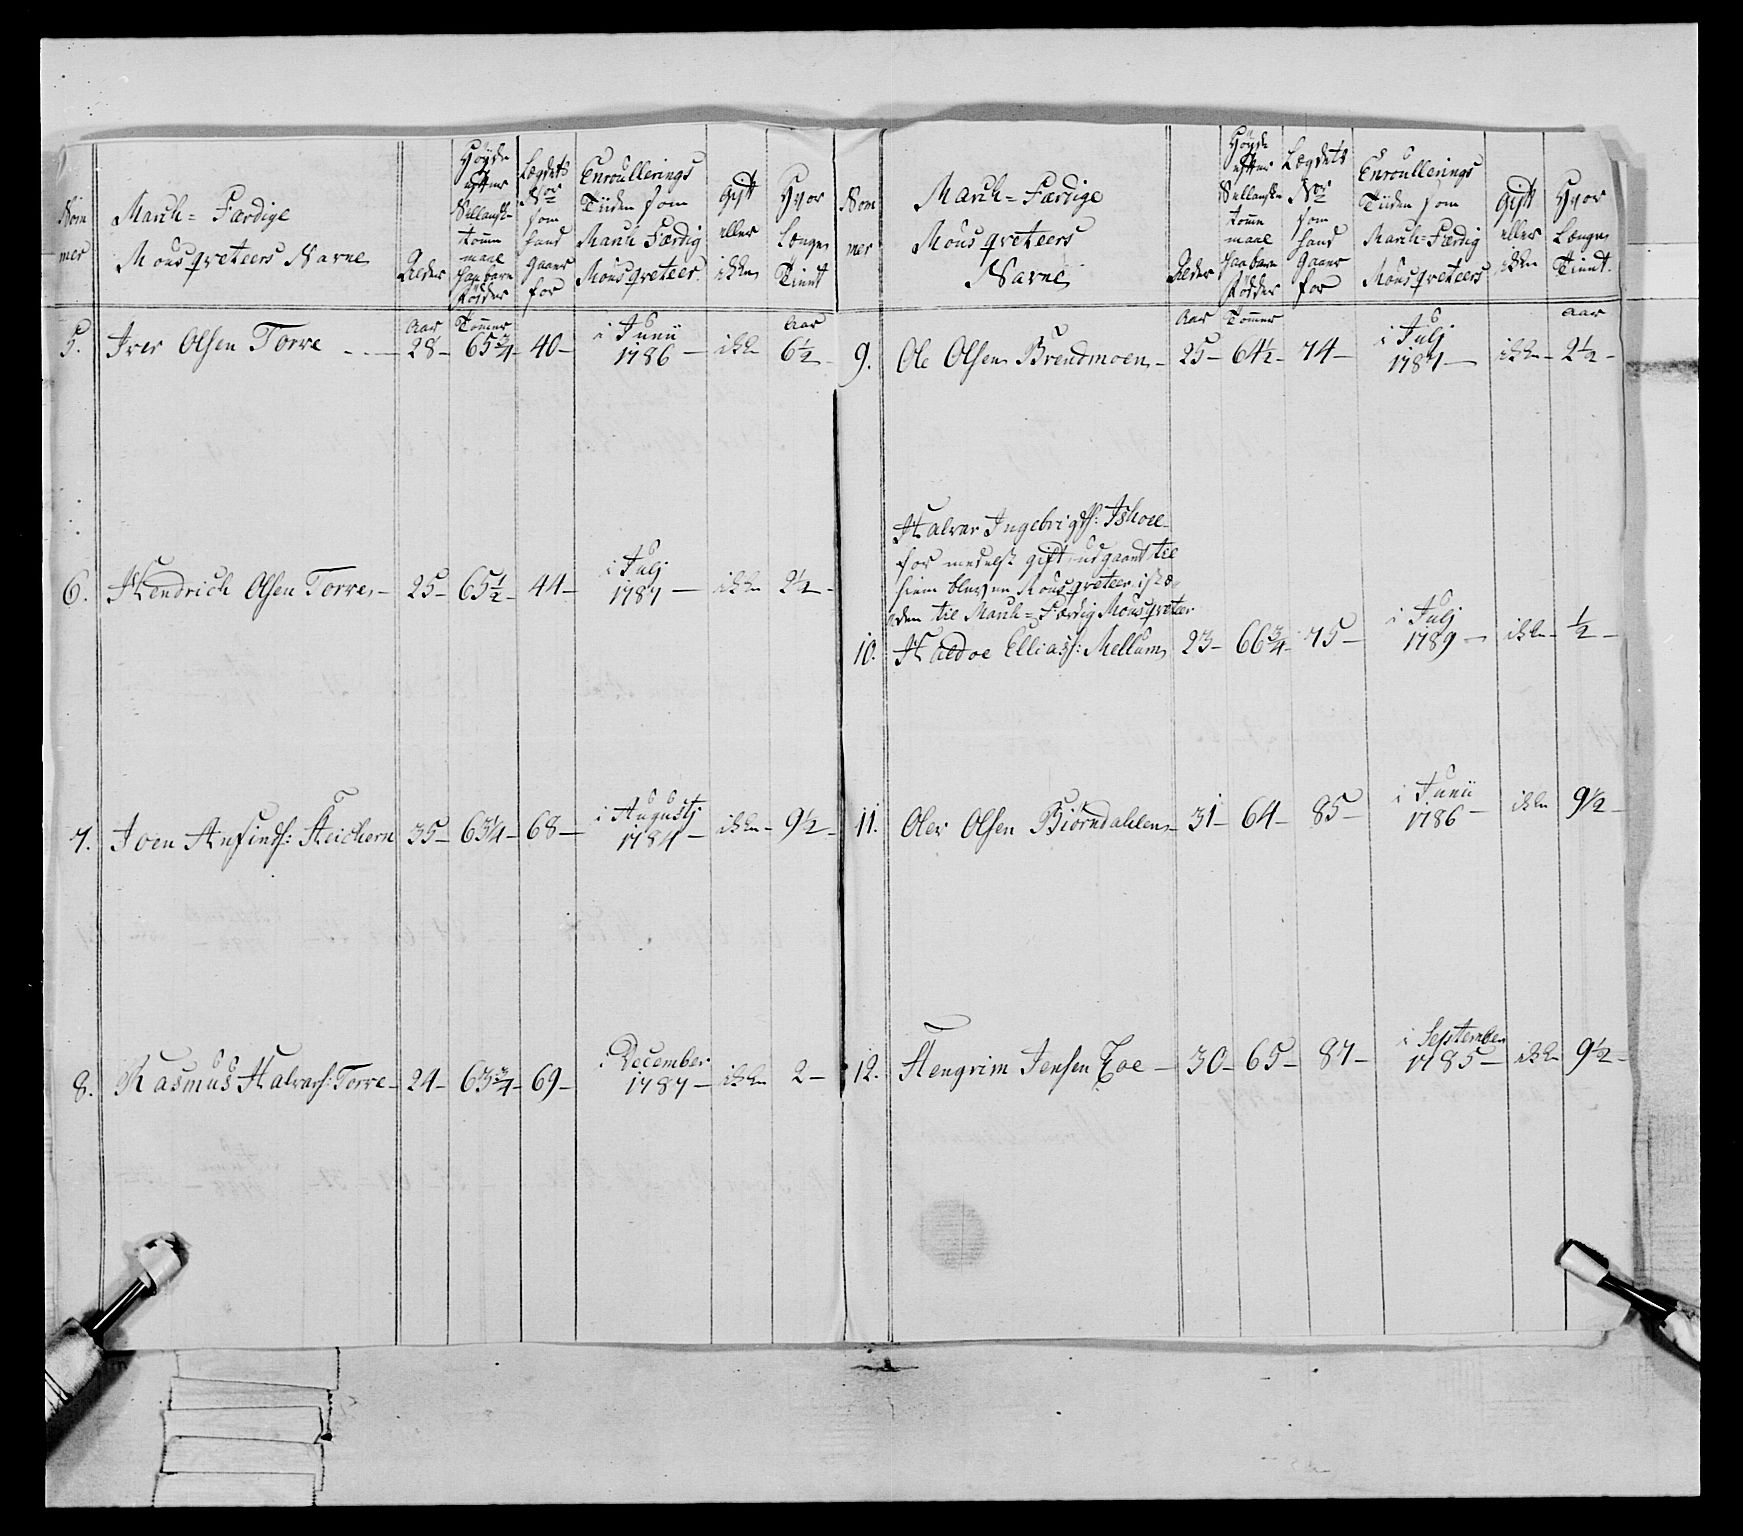 Nom
mer
March=Færdige
Mousqveteers Navne
Alder
Høyde
efter
Sellandsk
tomme
maal
paa bare
Fødder
Lægdets
No
som
hand
gaaer
for
Enroullerings
Tiiden som
March Færdig
Mousqveteer.
Gift
eller
ikke
Hvor
Længe
Tient
Aar
Tommer
Aar
5. Iver Olsen Torre - - - 28 - 65 3/4 - 40 - i Junii 1786 - ikke 6 1/2 -
6. Hendrich Olsen Torre - 25 - 65 1/2 - 44 - i Julj 1787 - ikke 2 1/2 -
7. Joen Anfinds: 35 - 63 1/4 - 68 - i Augustj 1784 - ikke - 9 1/2 -
8. Rasmus Halvors: Torre - 24 - 63 3/4 - 69 - i December 1787 - ikke 2 -
Nom
mer
March=Færdige
Mousqveteers
Navne
Alder
Høyde
efter
Sellandsk
tomme
maal
paa bare
Fødder
Lægdets
No
som
hand
gaaer
for
Enroullerings
Tiiden som
March=Færdig
Mousqveteers
Gift
eller
ikke
Hvor
Længe
Tient.
Aar
Tommer
Aar
9. Ole Olsen Brendmoen - 25 - 64 1/2 - 74 - i Julj 1787 - ikke - 2 1/2 -
Halvor Ingebrigts: Ishoel
formedelst gift udgaaet til
hiem bliven Mousqveteer, istæ-
den til March=Færdig Mousqveteer
10. Haldoe Elliass: Mellum 23 - 66 3/4 - 75 - i Julj 1789 - ikke - 1/2 -
11. Oler Olsen Biörndahlen - 31 - 64 - 85 - i Junii 1786 - ikke 9 1/2 -
12. Stengrim Jensen Toe - 30 - 65 - 87 - i September 1785 - ikke 9 1/2 -